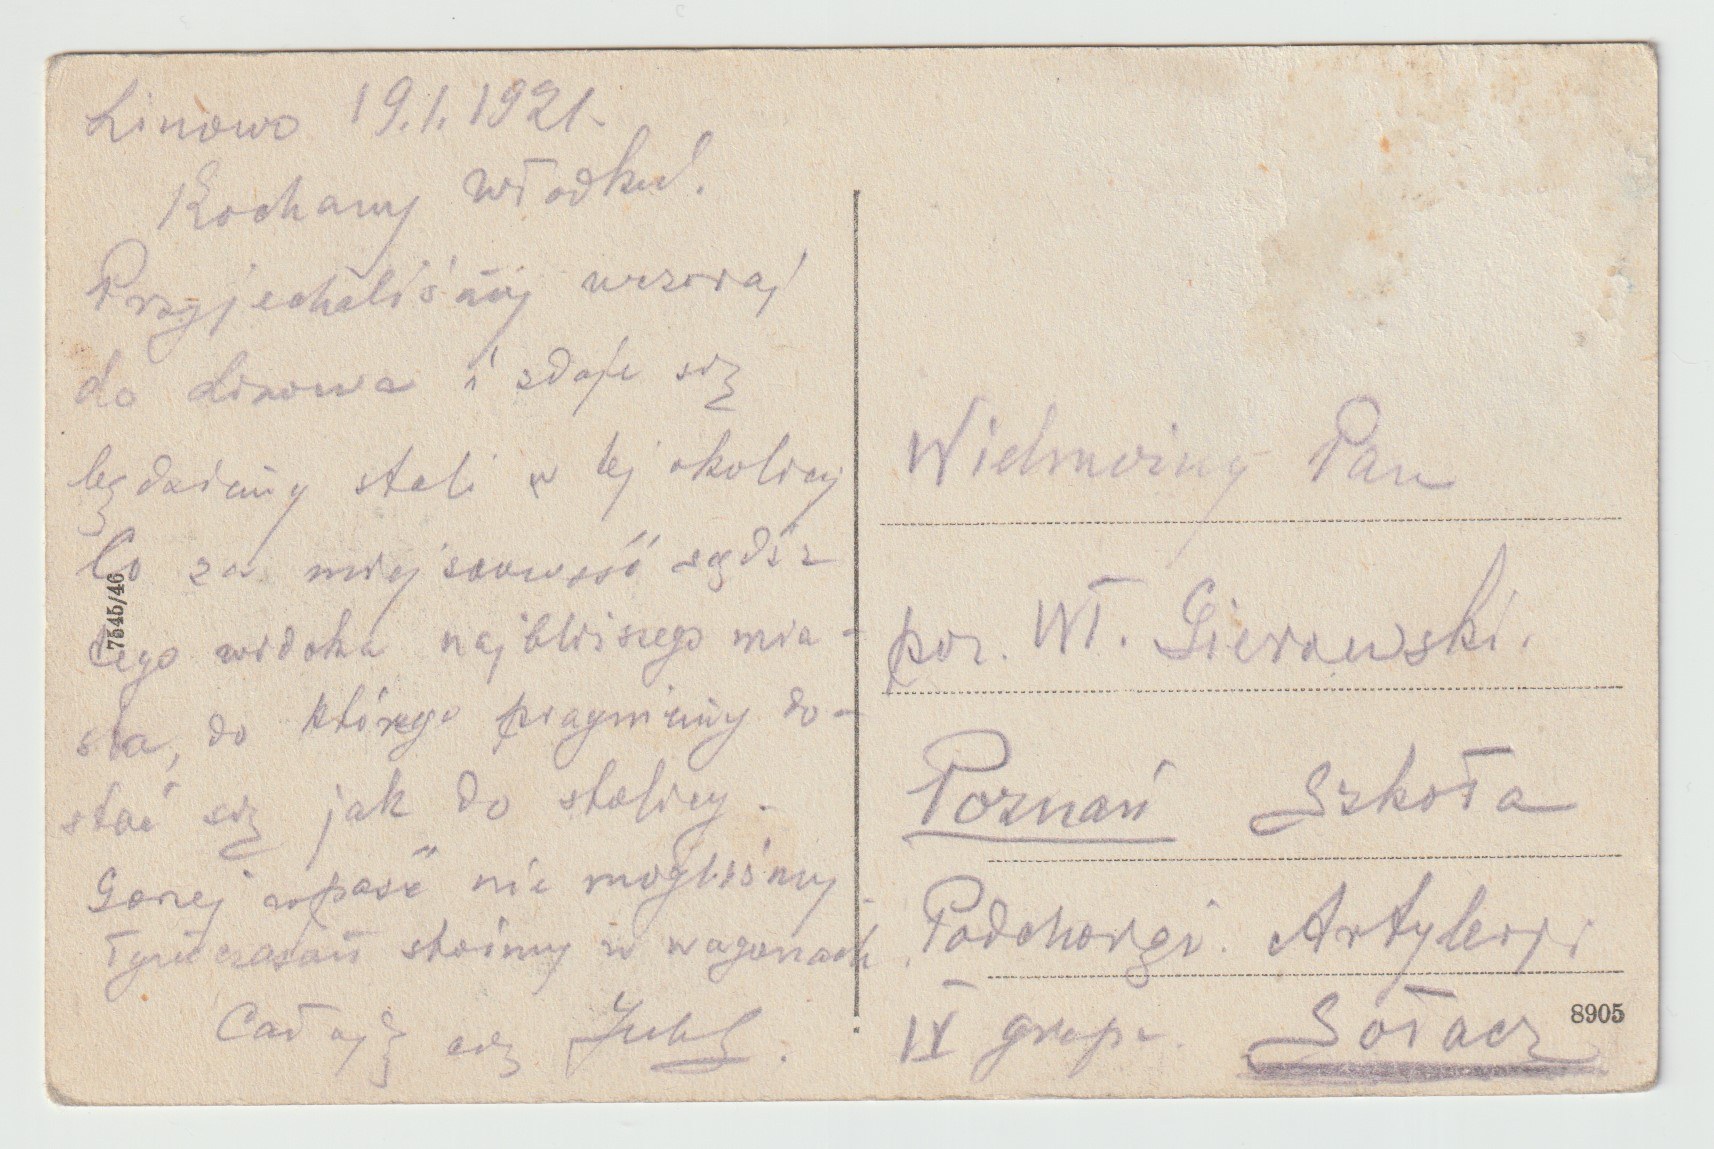 Linowo 19.1.1921.
Kochany Włodku!
Przyjechaliśmy wczoraj
do Linowa i zdaje się
będziemy stali w tej okolicy
Co za miejscowość sądź z
tego widoku najbliższego mia-
sta, do którego pragniemy do-
stać się jak do stolicy.
Gorzej wpaść nie mogliśmy
Tymczasem stoimy w wagonach.
Całuję cię
Wielmożny Pan
por. Wł. Gierowski.
Poznań Szkoła
Podchorąż. Artylerji
IV grupa.
Sołacz
7545/46
8905